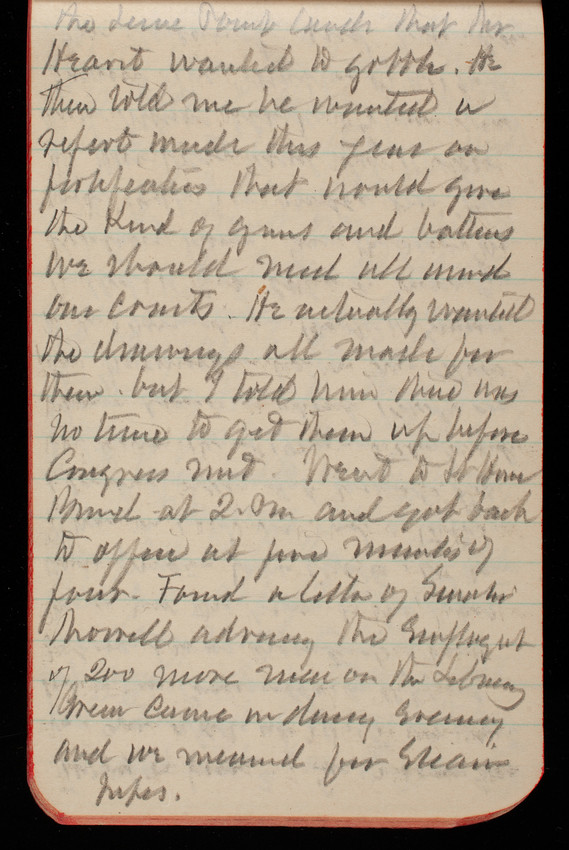 the Lime Point lands that Mr
Hearst wanted to gobble. He
then told me he wanted a
report made this year on
fortifications that would give
the kind of guns and batteries
we should need all around
our coasts. He actually wanted
the drawings all made for
them. but I told him there was
no time to get them up before
Congress met. Went to Lt House
Board at 2. Pm and got back
to office at five minutes of
four. Found a letter of Senator
advising the Employmt
of 200 more men on the Library
Green came in during Evening
and we measured for Steam
Pipes.